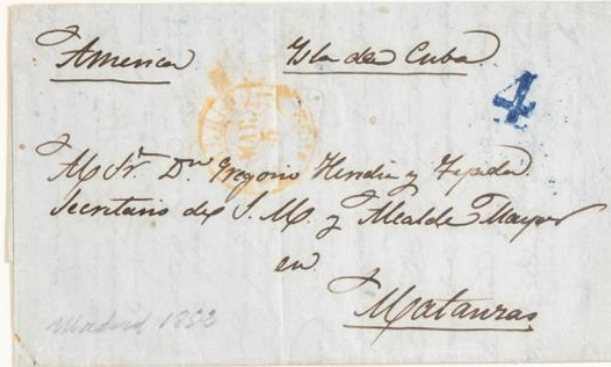 America Isla de Cuba
4
Al Sr. Dn. Gregorio y Tejada
Secretario de S. M. y Alcalde Mayor
en
Matanzas
Madrid 1852